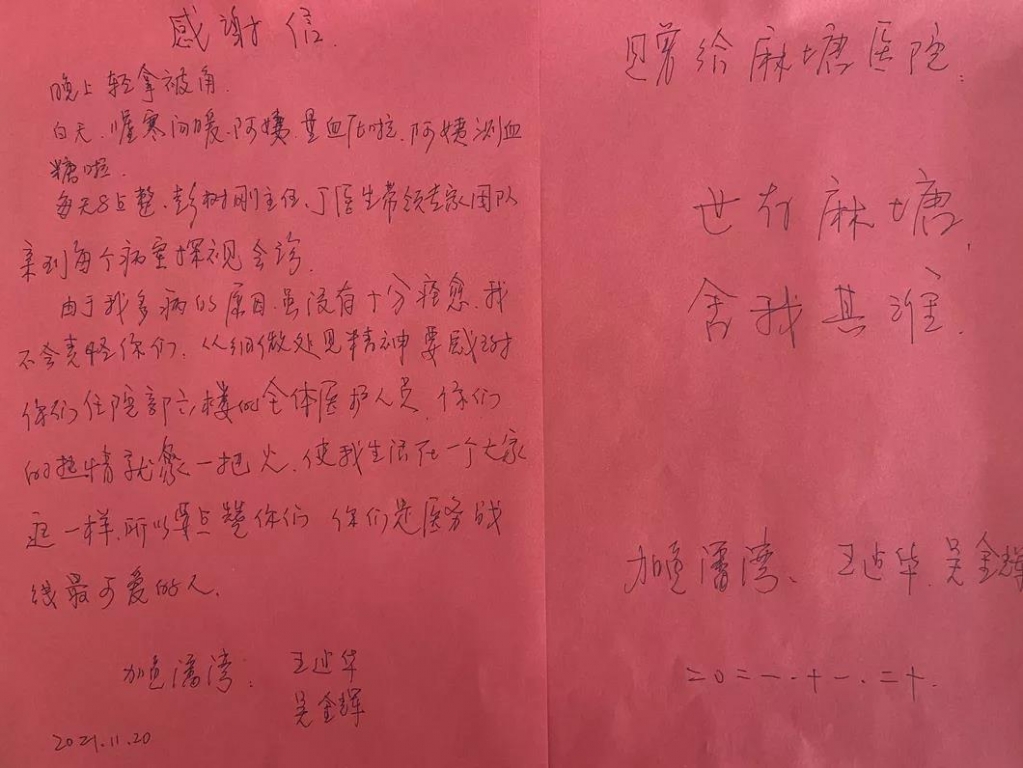 感谢信
晚上轻拿被角.
白天.嘘寒问暖.阿姨.量血压啦.阿姨测血
糖啦.
每天8点整.彭树刚主任、丁医生带领专家团队
来到每个病室探视会诊.
由于我多病的原因.虽没有十分痊愈.我
不会责怪你们.从细微处见精神要感谢
你们住院部六楼的全体医护人员.你们
的热情就象一把火.使我生活在一个大家
庭一样.所以要点赞你们 你们是医务战
线最可爱的人.
加鱼潘湾: 王 华
吴金辉
2021.11.20
赠给麻塘医院.
世有麻塘,
舍我其谁.
加鱼潘湾、王 华.吴金辉
二0二一.十一.二十.